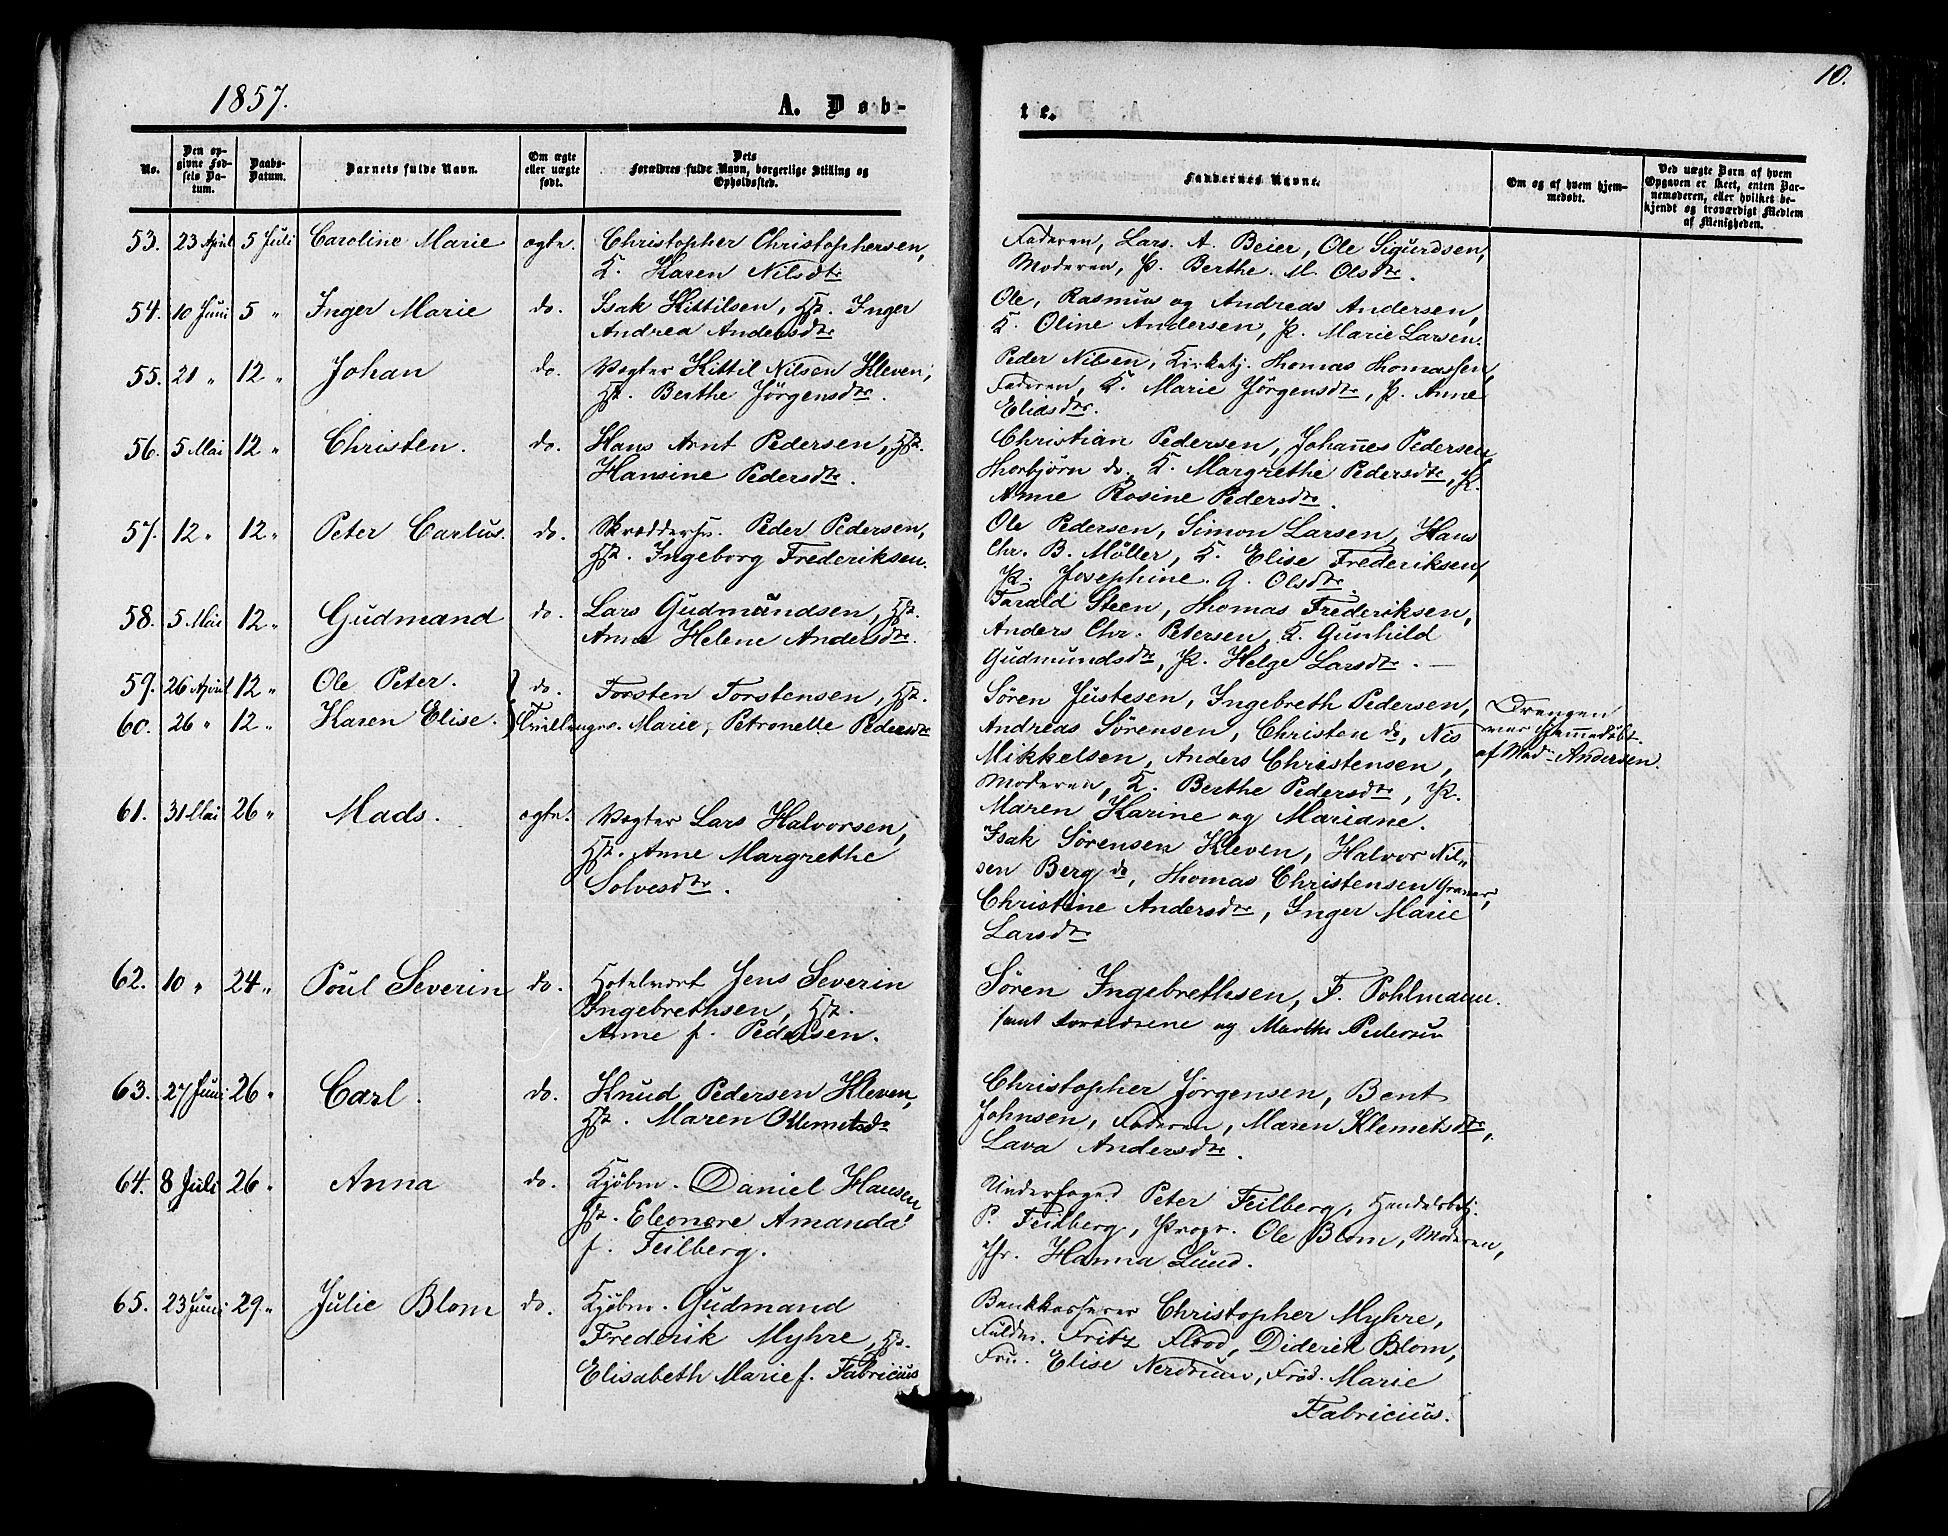 1857.
A. Døb-
te.
10.
No.
Den op-
givne Fød-
sels Da-
tum.
Daabs-
Datum.
Barnets fulde Navn.
Om ægte
eller uægte
født.
Dets
Forældres fulde Navn, borgerlige Stilling og
Opholdssted.
Faddernes Navne.
Om og af hvem hjem-
medøbt.
Ved uægte Børn af hvem
Opgaven er skeet, enten Bar-
nemoderen, eller hvilket be-
kjendt og troværdigt Medlem
af Menigheden.
53. 23 April 5 Juli Caroline Marie ægte. Christopher Christophersen,
K. Karen Nilsdtr
Faderen, Lars A. Beier, Ole Sigurdsen,
Moderen, P. Berthe M. Olsdtr.
54. 10 Juni 5 " Inger Marie do. Isak Kittilsen, Hst. Inger
Andrea Andersdtr
Ole, Rasmus og Andreas Andersen,
K. Oline Andersen, P. Marie Larsen.
55. 21 " 12 " Johan do. Vægter Kittil Nilsen Kleven,
Hst. Berthe Jörgensdtr.
Peder Nilsen, Kirketj. Thomas Thomassen,
Faderen, K. Marie Jörgensdtr, P. Anne
Eliasdtr.
56. 5 Mai 12 " Christen. do. Hans Arnt Pedersen, Hst.
Hansine Pedersdtr.
Christian Pedersen, Johañes Pedersen,
Thorbjörn do. K. Margrethe Pedersdtr, P.
Anne Rosine Pedersdtr.
57. 12 " 12 " Peter Carlus. do. Skræddersv. Peder Pedersen,
Hst. Ingeborg Frederiksen.
Ole Pedersen, Simon Larsen, Hans
Chr. B. Möller, K. Elise Frederiksen,
P. Josephine G. Olsdtr.
58. 5 Mai 12 " Gudmand do. Lars Gudmundsen, Hst.
Anne Helene Andersdtr.
Tarald Steen, Thomas Frederiksen,
Anders Chr. Petersen, K. Gunhild
Gudmundsdtr, P. Helge Larsdtr. —
59. 26 April 12 " Ole Peter. } do. Torsten Torstensen, Hst.
60. 26 " 12 " Karen Elise. } Tvillinger. Marie Petronelle Pedersdtr
Sören Justesen, Ingebreth Pedersen,
Andreas Sörensen, Christen do, Nis
Mikkelsen, Anders Christensen,
Moderen, K. Berthe Pedersdtr, P.
Maren Karine og Mariane.
Drengen
var hjemmedöbt
af Mad. Andersen.
61. 31 Mai 26 " Mads. ægte. Vægter Lars Halvorsen,
Hst. Anne Margrethe
Solvesdtr.
Isak Sörensen Kleven, Halvor Nil-
sen Berg do, Thomas Christensen Graver,
Christine Andersdtr, Inger Marie
Larsdtr
62. 10 " 24 " Poul Severin do. Hotelvært Jens Severin
Ingebrethsen, Hst.
Anne f. Pedersen.
Sören Ingebrethsen, F. Pohlmann.
samt Forældrene og Marthe Pedersen
63. 27 Juni 26 " Carl. do. Knud Pedersen Kleven,
Hst. Maren Klemetsdr
Christopher Jörgensen, Bent
Johnsen, Faderen, Maren Klemetsdtr,
Lava Andersdtr.
64. 8 Juli 26 " Anna do. Kjöbm. Daniel Hansen,
Hst. Eleonore Amanda
f. Feilberg.
Underfoged Peter Feilberg, Handelsbetj.
P. Feilberg, Propr. Ole Blom, Moderen,
Jfr. Hanna Lund.
65. 23 Juni 29 " Julie Blom do. Kjöbm. Gudmand
Frederik Myhre, Hst.
Elisabeth Marie f. Fabricius
Bankkasserer Christopher Myhre,
Fuldm. Fritz Flood, Diderik Blom,
Fru. Elise Nerdrum, Fröd. Marie
Fabricius.